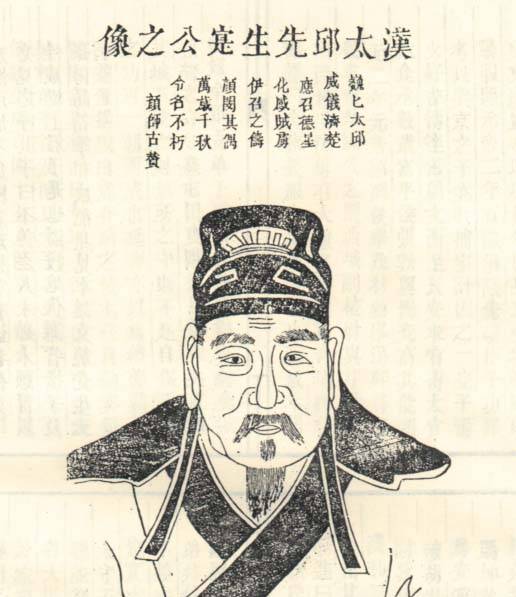 漢太邱先生寔公之像
巍匕太邱
威儀濟楚
應召德星
化感賊虜
伊召之儔
顔閔其偶
萬歲千秋
令名不朽
顔師古贊